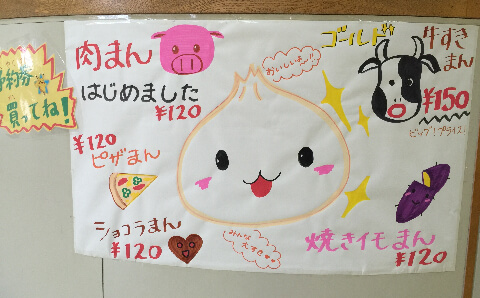 肉まん
はじめました
¥120
¥120
ピザまん
ショコラまん
¥120
おいしいよ
みんな
大好き
ゴールド
牛すき
まん
¥150
ビッグ！プライス！
焼きイモまん
¥120
予約券
買ってね！